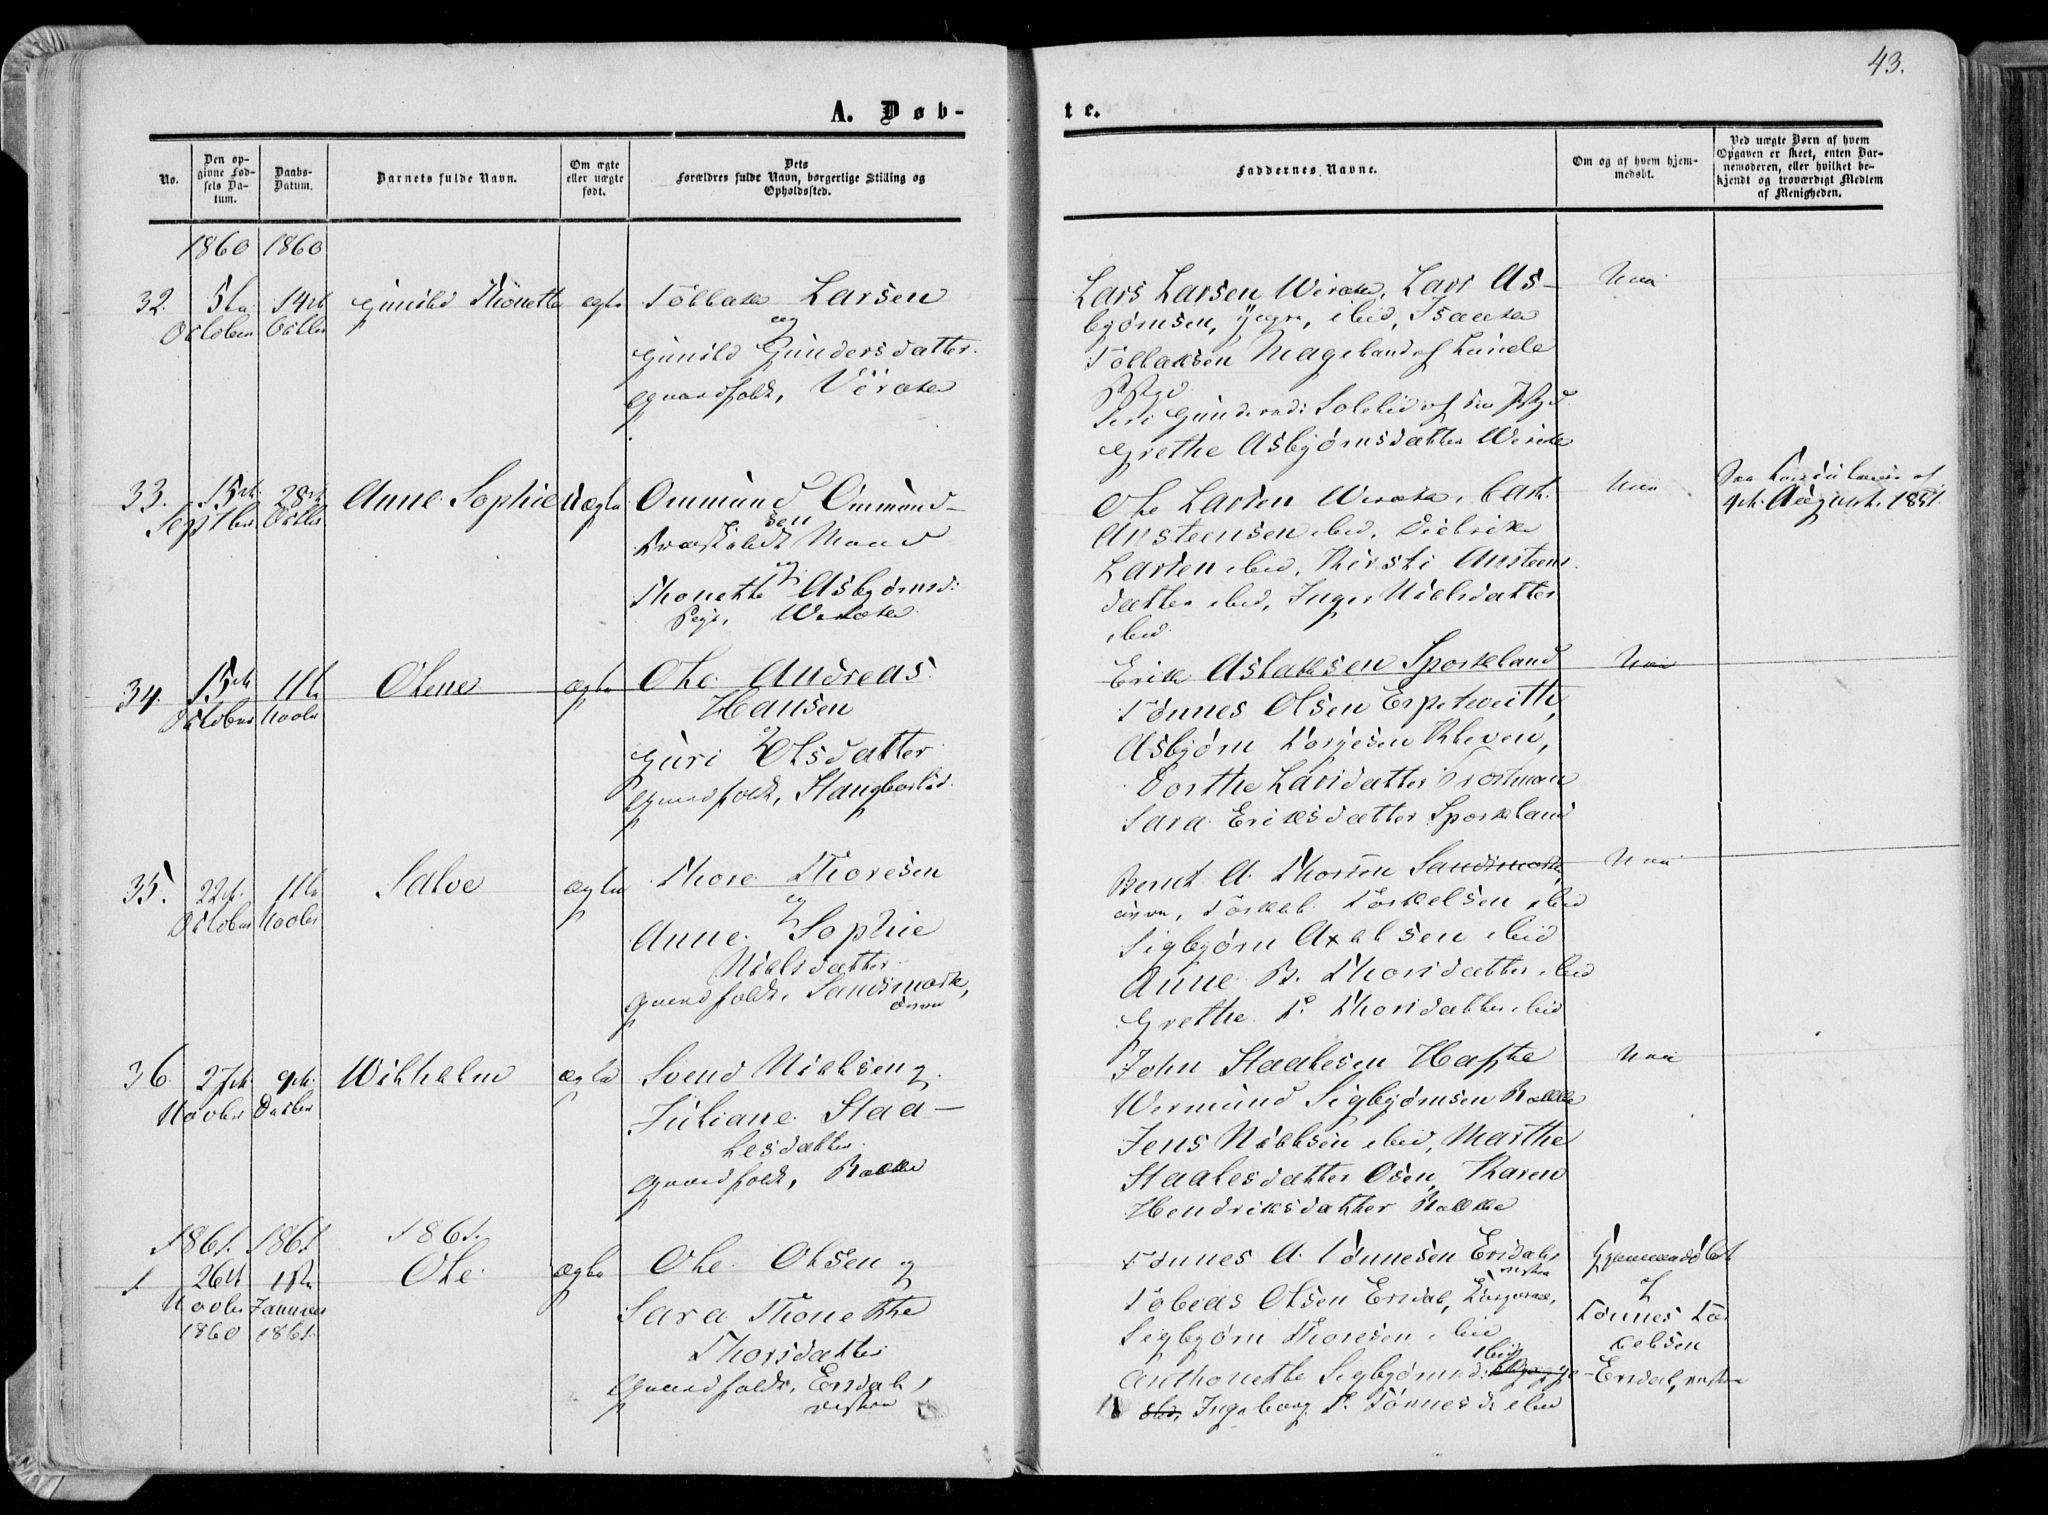 43.
A. Døb-
te.
No.
Den op-
givne Fød-
sels Da-
tum.
Daabs-
Datum.
Barnets fulde Navn.
Om ægte
eller uægte
født.
Dets
Forældres fulde Navn, borgerlige Stilling og
Opholdssted.
Faddernes Navne.
Om og af hvem hjem-
medøbt.
Ved uægte Børn af hvem
Opgaven er skeet, enten Bar-
nemoderen, eller hvilket be-
kjendt og troværdigt Medlem
af Menigheden.
1860 1860
32.
5te
October
14de
Octbr
Gunild Thonette
ægte
Tollak Larsen
og
Gunild Gundersdatter.
Qvandfolk, Virak
Lars Larsen Virak, Lars As-
bjørnsen, ibid, Isaak
Tollaksen Mageland af Lunde
Siri Gundersd: Solelid af
Grethe Asbjørnsdatter Virak
Nei
33.
15de
Septbr
28de
Octbr
Anne Sophie
Uægte
Ommund Ommund-
sen
Mand
og
Thonette Asbjørnsd:
Pige, Virak
Ole Larsen Virak,
Austeensen ibid, Diderik
Larsen ibid, Kirsti Austeens
datter ibid, Inger Nielsdatter
ibid.
Nei
4de August 1851.
34.
15de
October
11te
Novbr
Olene
ægte
Ole Andreas
Hansen
og
Guri Olsdatter
Qvandfolk, Stangborlid.
Erik Aslaksen Sporkeland
Tønnes Olsen Erpetveith,
Asbjørn Torjesen Kleven,
Dorthe Larsdatter Trostman
Sara Eriksdatter Sporkeland
Nei
35.
22de
October
11te
Novbr
Salve
ægte
Thore Thoresen
og
Anne Sophie
Nielsdatter
Qvandfolk, Sandsmark,
øvre
Bernt A. Thorsen Sandsmark,
øvre, Torkel Torkelsen ibid
Sigbjørn Axelsen ibid
Anne B. Thorsdatter ibid
Grethe T. Thorsdatter ibid
Nei
36.
27de
Novbr
9de
Decbr
Wilhelm
ægte
Svend Nielsen og
Juliane Staa-
lesdatter
Qvandfolk, Bakke
John Staalesen Hafte
Wermund Sigbjørnsen Bakke
Jens Nielsen ibid, Marthe
Staalesdatter Osen, Karen
Hendriksdatter Bakke
Nei
1861. 1861 1861.
1
26de
Novbr
1860
Januar
1861.
Ole
ægte
Ole Olsen og
Sara Thonette
Thorsdatter
Qvandfolk, Ersdal,
vestre
Tønnes A. Tønnesen Ersdal,
vestre
Tobias Olsen Ersdal,
Sigbjørn Thoresen ibid
ibid
Anthonette Sigbjørnsd:
Ingeborg T. Tønnesd: ibid
Hjemmedøbt
af
Tønnes Tor
kelsen
Ersdal, vestre